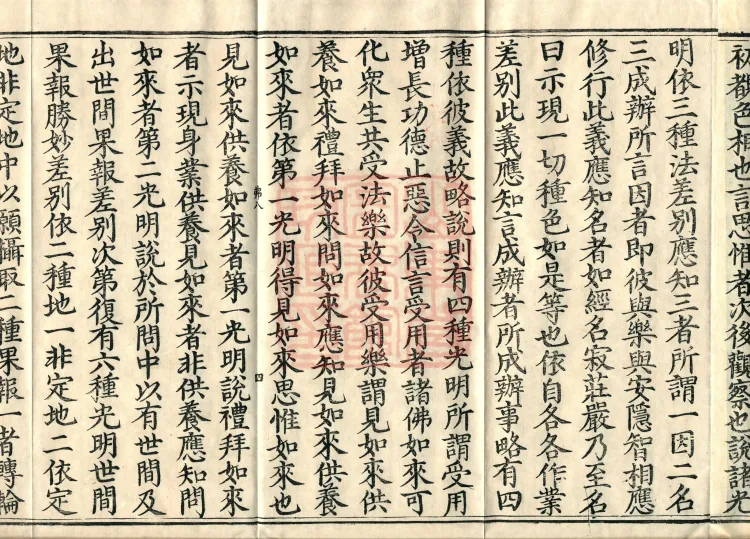 初都色相也言思惟者次後觀察也說諸光
明依三種法差別應知三者所謂一因二名
三成辦所言因者即彼與樂與安隱智相應
修行此義應知名者如經名寂莊嚴乃至名
曰示現一切種色如是等也依自各各作業
差別此義應知言成辦者所成辦事略有四
種依彼義故略說則有四種光明所謂受用
增長功德止惡令信言受用者諸佛如來可
化衆生共受法樂故彼受用樂謂見如來供
養如來禮拜如來問如來應知見如來供養
如來者依第一光明得見如來思惟如來也
弗八
四
見如來供養如來者第一光明說禮拜如來
者示現身業供養見如來者非供養應知問
如來者第二光明說於所問中以有世間及
出世間果報差別次第復有六種光明世間
果報勝妙差別依二種地一非定地二依定
地非定地中以願攝取二種果報一者轉輪